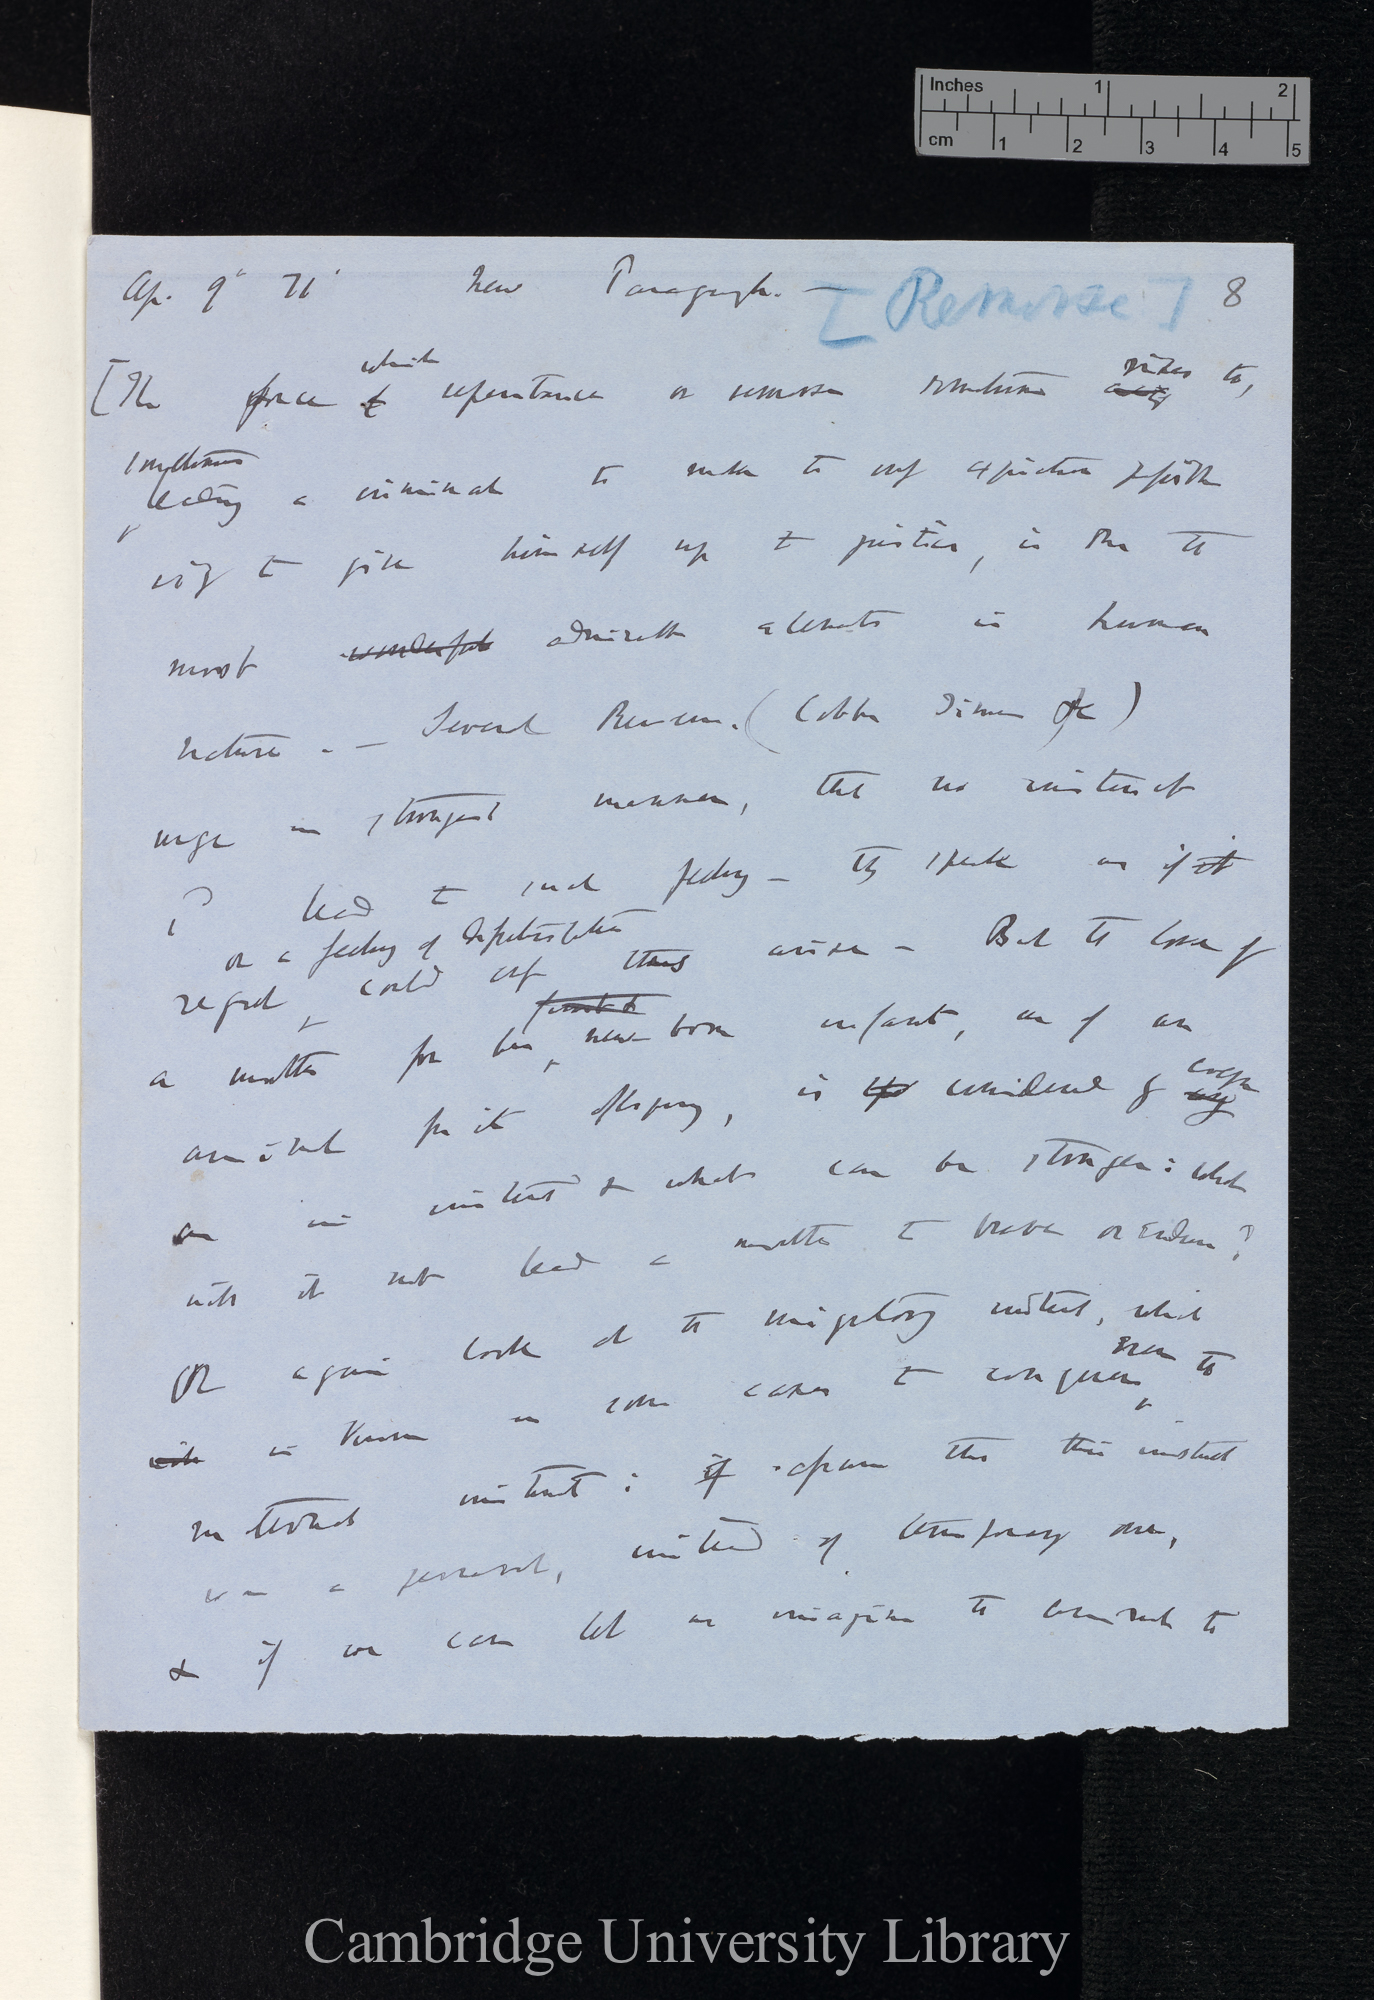 Inches 1 2
cm 1 2 3 4 5
Ap. 9th 71 New Paragraph. — [Remorse] 8
[The force which repentance or remorse sometimes rises to,
sometimes
leading a criminal to make to
to give himself up to justice, is one of the
most wonderful admirable elements in human
nature. — Several Reviewers. (Cobbe Times &c)
urge in strongest manner, that no instinct
lead to such feeling — they speak as if
or a feeling of dissatisfaction
regret, could only thus arise — But the love of
a mother for her new-born infant, or of an
animal for its offspring, is considered by every
one an instinct & what can be stronger: what
will it not lead a mother to brave or endure?
Or again look at the migratory instinct, which
is known in some cases to conquer even the
maternal instinct: if suppose that this instinct
was a permanent, instead of temporary one,
& if we can let us imagine the animal to
Cambridge University Library